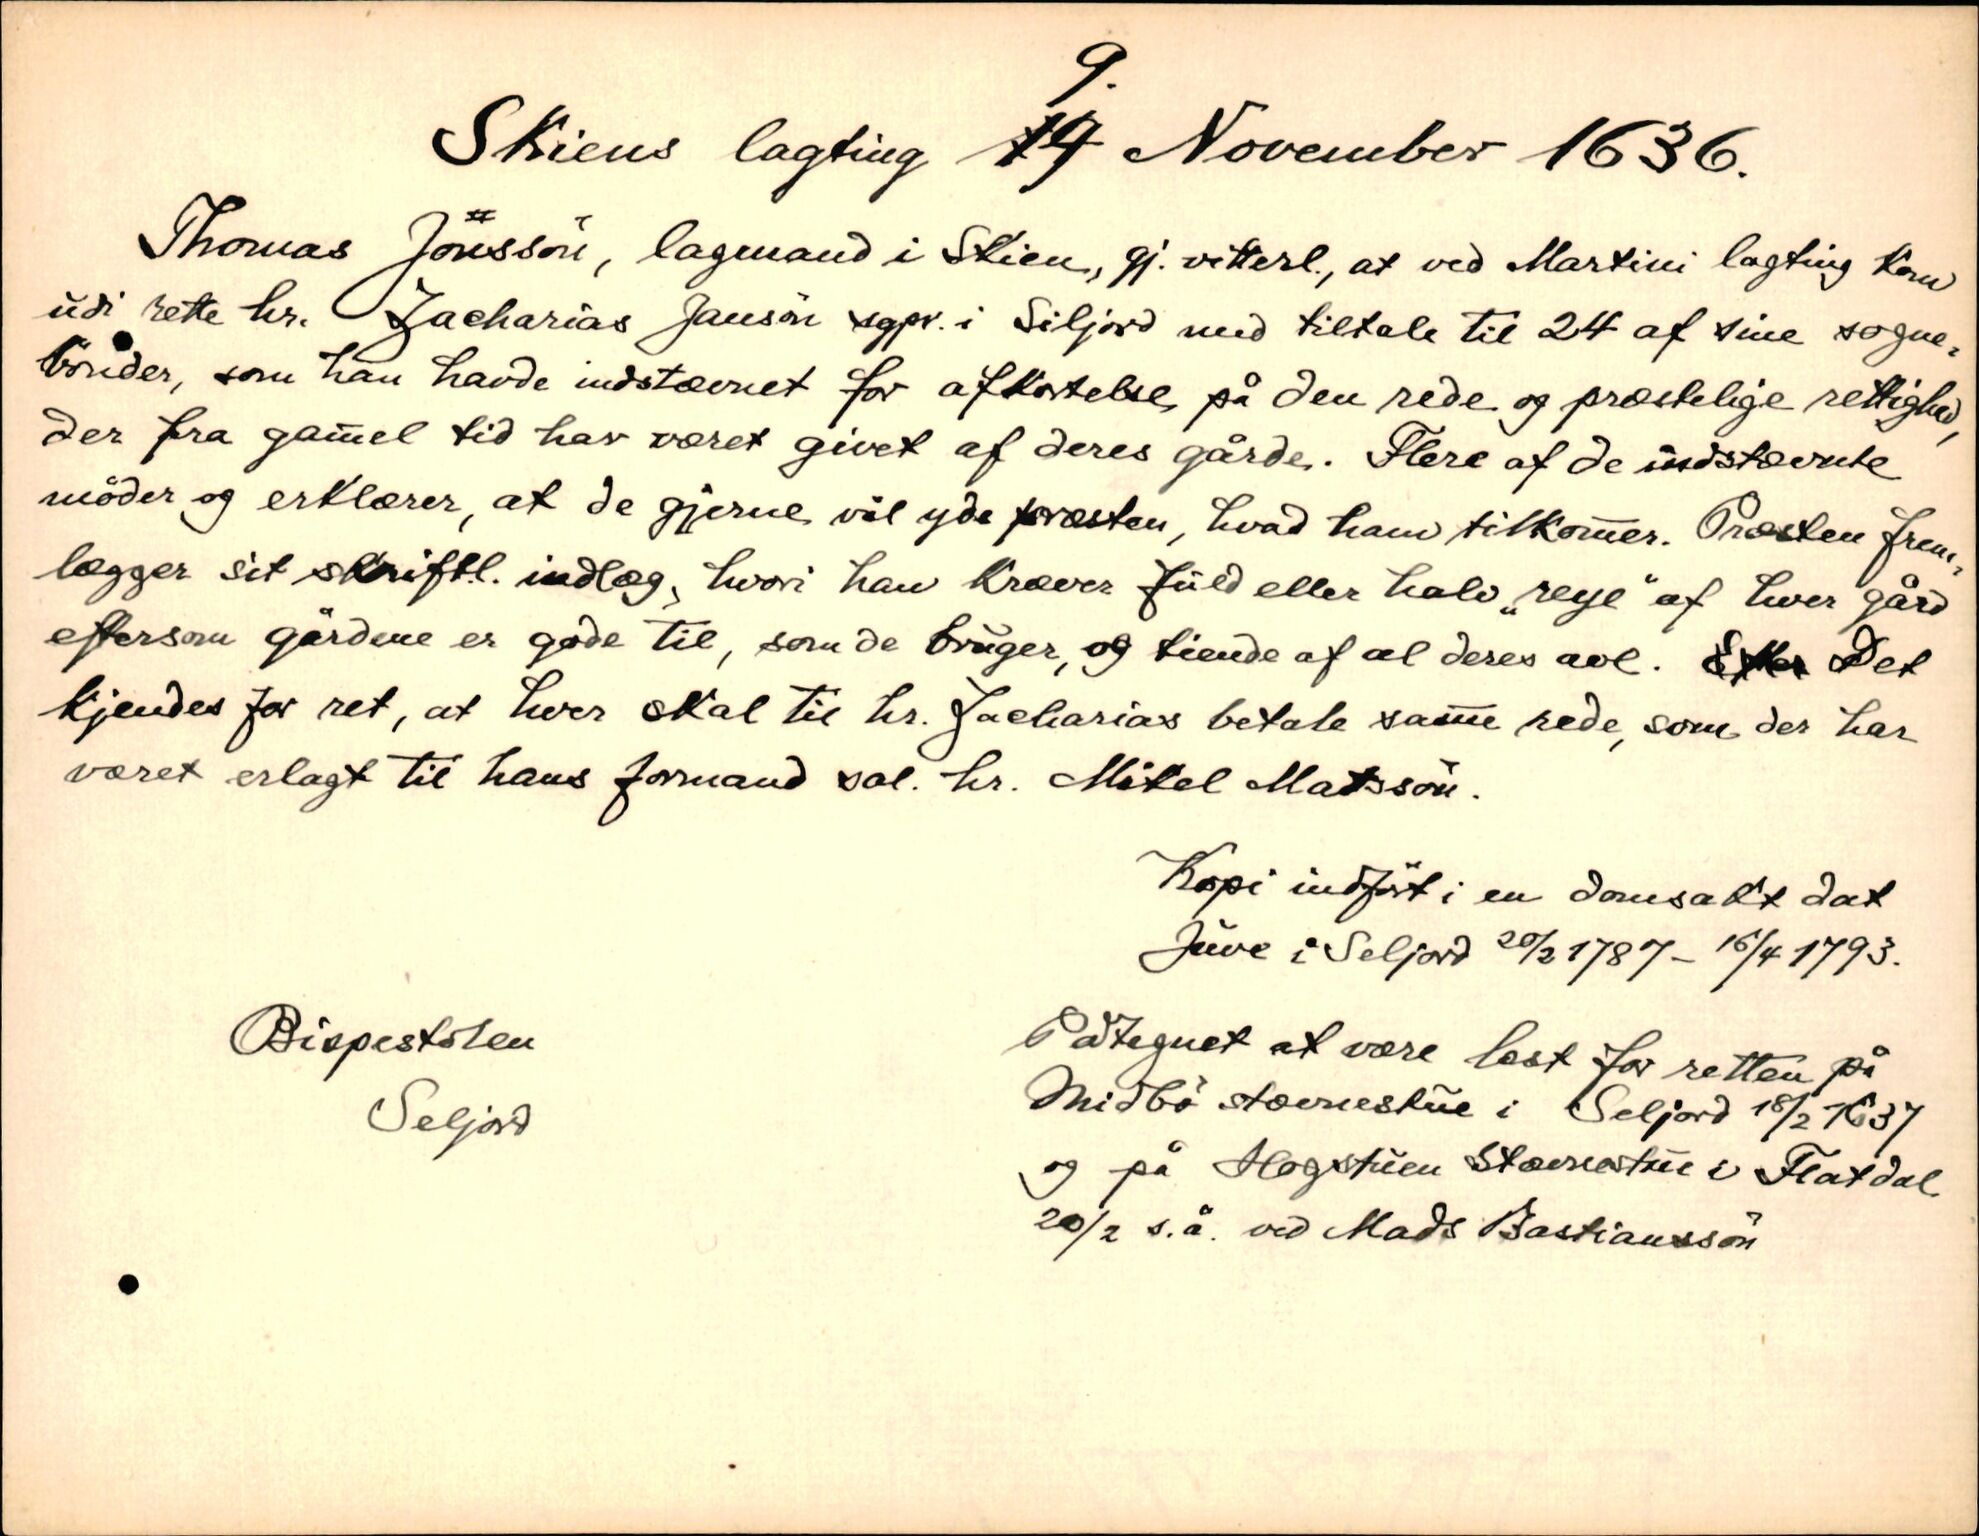 9.
Skiens lagting 14 November 1636.
Thomas Jönssön, lagmand i Skien, gj. vitterl., at ved Martini lagting kom
udi rette hr. Zacharias Jansön sgpr. i Siljord med tiltale til 24 af sine sogne-
bönder, som han havde indstævnet for afkortelse på den rede og præstelige rettighed,
der fra gam̅el tid har været givet af deres gårde. Flere af de indstævnte
möder og erklærer, at de gjerne vil yde præsten, hvad ham tilkom̅er. Præsten frem-
lægger sit skriftl. indlæg, hvori han kræver fuld eller halv „reye“ af hver gård
eftersom gårdene er gode til, som de bruger, og tiende af al deres avl. Efter Det
kjendes for ret, at hver skal til hr. Zacharias betale sam̅e rede, som der har
været erlagt til hans formand sal. hr. Mikel Matssön.
Kopi indfört i en domsakt dat
Juve i Seljord 20/2 1787 - 16/4 1793.
Bispestolen
Seljord
Påtegnet at være læst for retten på
Midbö stævnestue i Seljord 18/2 1637
og på Hogstuen Stævnestue i Flatdal
20/2 s. å. ved Mads Bastianssön